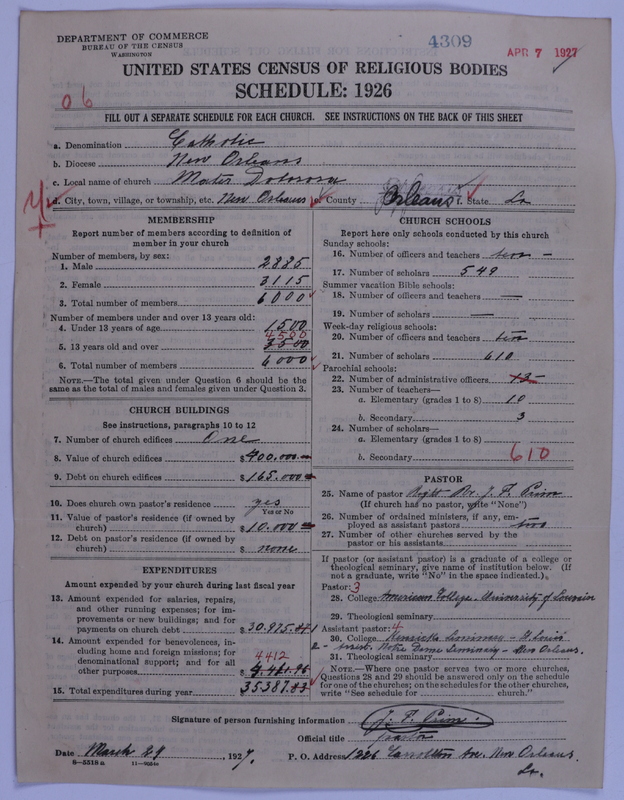 DEPARTMENT OF COMMERCE
BUREAU OF THE CENSUS
WASHINGTON
4309
APR 7 1927
UNITED STATES CENSUS OF RELIGIOUS BODIES
SCHEDULE: 1926
06
FILL OUT A SEPARATE SCHEDULE FOR EACH CHURCH. SEE INSTRUCTIONS ON THE BACK OF THIS SHEET
a. Denomination Catholic
b. Diocese New Orleans
c. Local name of church Mater Dolorosa
d. City, town, village, or township, etc. New Orleans e. County Orleans f. State La
MEMBERSHIP
Report number of members according to definition of
member in your church
Number of members, by sex:
1. Male 2885
2. Female 3115
3. Total number of members 6000
Number of members under and over 13 years old:
4. Under 13 years of age 1500
4500
5. 13 years old and over 3500
6. Total number of members 6000
NOTE.—The total given under Question 6 should be the
same as the total of males and females given under Question 3.
CHURCH BUILDINGS
See instructions, paragraphs 10 to 12
7. Number of church edifices One
8. Value of church edifices $400.000
9. Debt on church edifices $165.000
10. Does church own pastor's residence yes
Yes or No
11. Value of pastor's residence (if owned by
church) $10.000
12. Debt on pastor's residence (if owned by
church) $ none
EXPENDITURES
Amount expended by your church during last fiscal year
13. Amount expended for salaries, repairs,
and other running expenses; for im-
provements or new buildings; and for
payments on church debt $30.975.
14. Amount expended for benevolences, in-
cluding home and foreign missions; for
denominational support; and for all
4412
other purposes $
15. Total expenditures during year 35387.83
CHURCH SCHOOLS
Report here only schools conducted by this church
Sunday schools:
16. Number of officers and teachers two
17. Number of scholars 549
Summer vacation Bible schools:
18. Number of officers and teachers —
19. Number of scholars —
Week-day religious schools:
20. Number of officers and teachers two
21. Number of scholars 610
Parochial schools:
22. Number of administrative officers 13
23. Number of teachers—
a. Elementary (grades 1 to 8) 10
b. Secondary 3
24. Number of scholars—
a. Elementary (grades 1 to 8)
b. Secondary 610
PASTOR
25. Name of pastor Right Rev. J. F. Prim
(If church has no pastor, write "None")
26. Number of ordained ministers, if any, em-
ployed as assistant pastors two
27. Number of other churches served by the
pastor or his assistants
If pastor (or assistant pastor) is a graduate of a college or
theological seminary, give name of institution below. (If
not a graduate, write "No" in the space indicated.)
Pastor: 3
28. College American College. University of Louvain
29. Theological seminary
Assistant pastor: 4
30. College 1 Kenrick Seminary - St Louis
2 - Notre Dame Seminary - New Orleans.
31. Theological seminary
NOTE.—Where one pastor serves two or more churches,
Questions 28 and 29 should be answered only on the schedule
for one of the churches; on the schedules for the other churches,
write "See schedule for church."
Signature of person furnishing information J. F. Prim.
Official title Pastor
Date March 29, 1927. P. O. Address 1226 Carrollton Ave. New Orleans.
La.
8—5318a 11—9051a